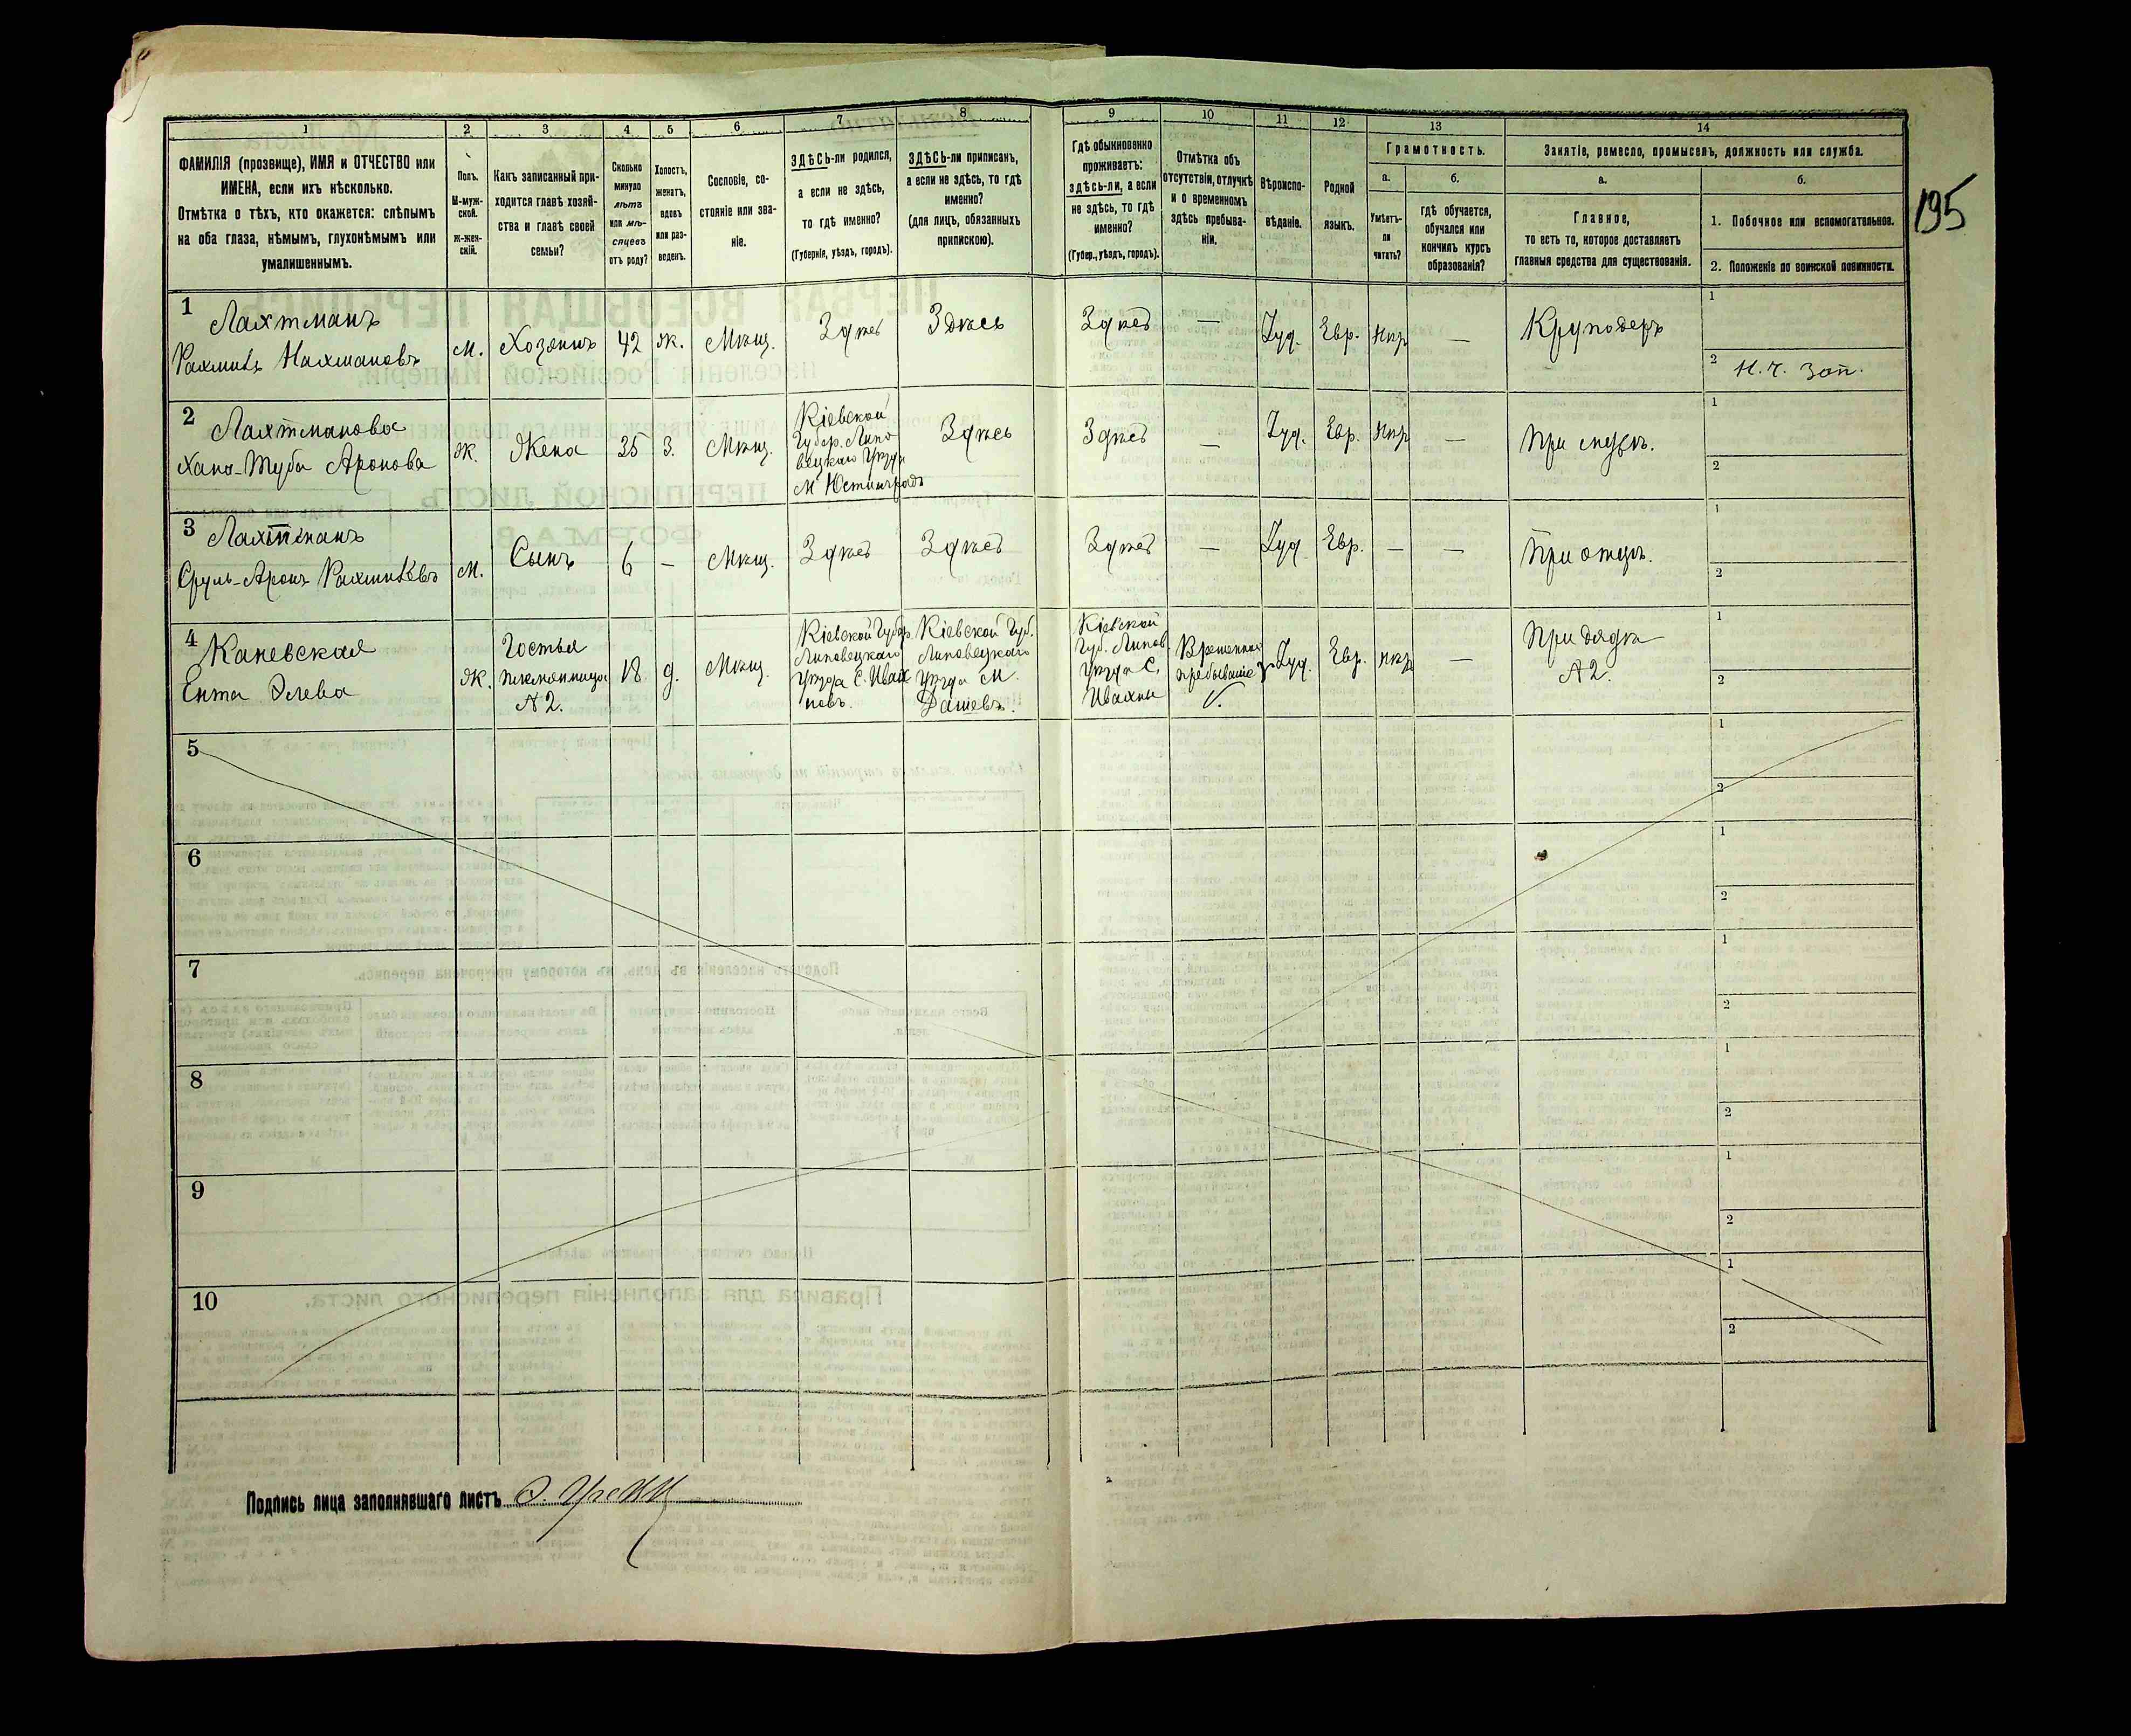 195
1 2 3 4 5 6 7 8 9 10 11 12 13 14
ФАМИЛІЯ (прозвище), ИМЯ и ОТЧЕСТВО или
ИМЕНА, если ихъ нѣсколько.
Отмѣтка о тѣхъ, кто окажется: слѣпымъ
на оба глаза, нѣмымъ, глухонѣмымъ или
умалишеннымъ.
Полъ.
М-муж-
ской.
Ж-жен-
скій.
Какъ записанный при-
ходится главѣ хозяй-
ства и главѣ своей
семьи?
Сколько
минуло
лѣтъ
или мѣ-
сяцевъ
отъ роду?
Холостъ,
женатъ,
вдовъ
или раз-
веденъ.
Сословіе, со-
стояніе или зва-
ніе.
ЗДѢСЬ-ли родился,
а если не здѣсь,
то гдѣ именно?
(Губернія, уѣздъ, городъ).
ЗДѢСЬ-ли приписанъ,
а если не здѣсь, то гдѣ
именно?
(для лицъ, обязанныхъ
припискою).
Гдѣ обыкновенно
проживаетъ:
здѣсь-ли, а если
не здѣсь, то гдѣ
именно?
(Губер., уѣздъ, городъ).
Отмѣтка объ
отсутствіи, отлучкѣ
и о временномъ
здѣсь пребыва-
ніи.
Вѣроиспо-
вѣданіе.
Родной
языкъ.
Грамотность.
а. б.
Умѣетъ-
ли
читать?
гдѣ обучается,
обучался или
кончилъ курсъ
образованія?
Занятіе, ремесло, промыселъ, должность или служба.
а. б.
Главное,
то есть то, которое доставляетъ
главныя средства для существованія.
1. Побочное или вспомогательное.
2. Положеніе по воинской повинности.
1
Лахтманъ
Рахмиль Нахмановъ
М.
Хозяинъ
42
ж.
Мѣщ.
Здѣсь
Здѣсь
Здѣсь
—
Іуд.
Евр.
Нѣтъ
—
Круподеръ
1
2 Н. ч. зап.
2
Лахтманова
Хана-Туба Аронова
Ж.
Жена
35
З.
Мѣщ.
Кіевской
Губер. Липо
вецкаго Уѣзда
М Юстинградъ
Здѣсь
Здѣсь
—
Іуд.
Евр.
Нѣтъ
—
При мужѣ.
1
2
3
Лахтманъ
Сруль-Аронъ Рахмилевъ
М.
Сынъ
6
—
Мѣщ.
Здѣсь
Здѣсь
Здѣсь
—
Іуд
Евр.
—
—
При отцѣ.
1
2
4
Каневская
Ента Элева
Ж.
Гостья
племянница
№ 2.
18
д.
Мѣщ.
Кіевской Губер
Липовецкаго
Уѣзда С.Ивах
новъ.
Кіевской Губ.
Липовецкаго
Уѣзда М.
Дашевъ.
Кіевской
Губ. Липов.
Уѣзда С.
Ивахны
Временно
пребываніе
Іуд.
Евр.
Нѣтъ
—
При дядѣ
№ 2.
1
2
5
1
2
6
1
2
7
1
2
8
1
2
9
1
2
10
1
2
Подпись лица заполнявшаго листъ